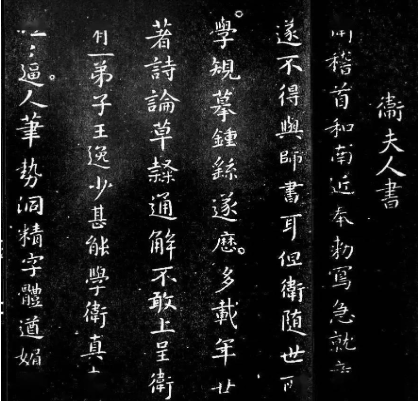 衛夫人書
稽首和南近奉勑寫急就
遂不得與師書耳但衛隨世
學規摹鍾繇遂歷多載年廿
著詩論草隸通解不敢上呈衛
弟子王逸少甚能學衛真
逼人筆勢洞精字體遒媚